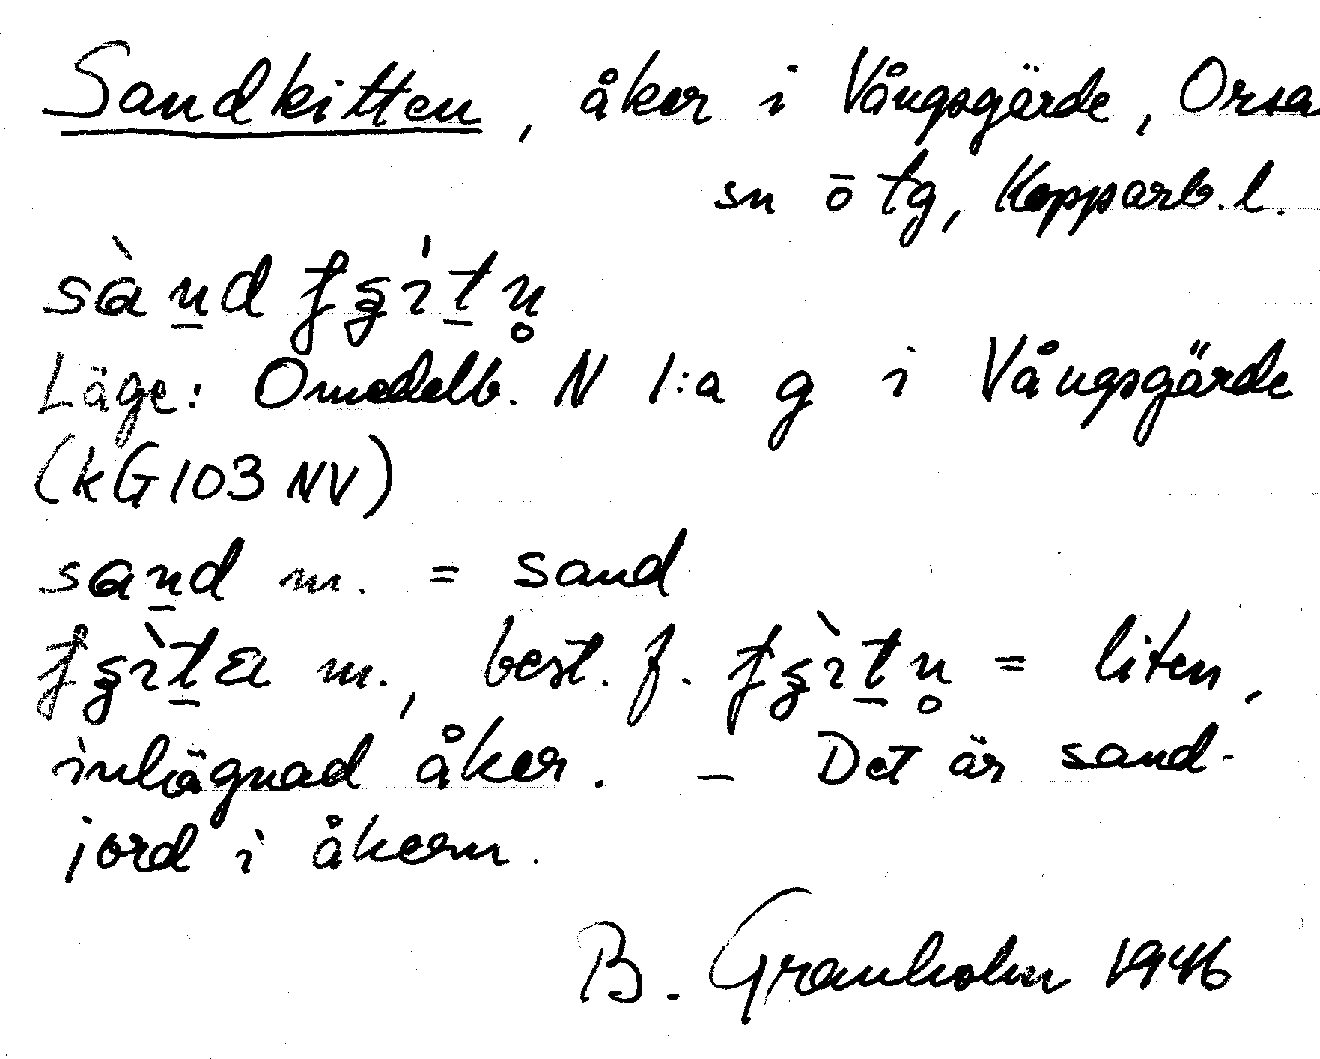 Sandkitten, åker i Vångsgärde, Orsa
sn ō tg, Kopparb. l.
Läge: Omedelb. N 1:a g i Vångsgärde
(kG103 NV)
sand m. = sand
m., best. f. = liten,
inhägnad åker. – Det är sand-
jord i åkern.
B. Granholm 1946